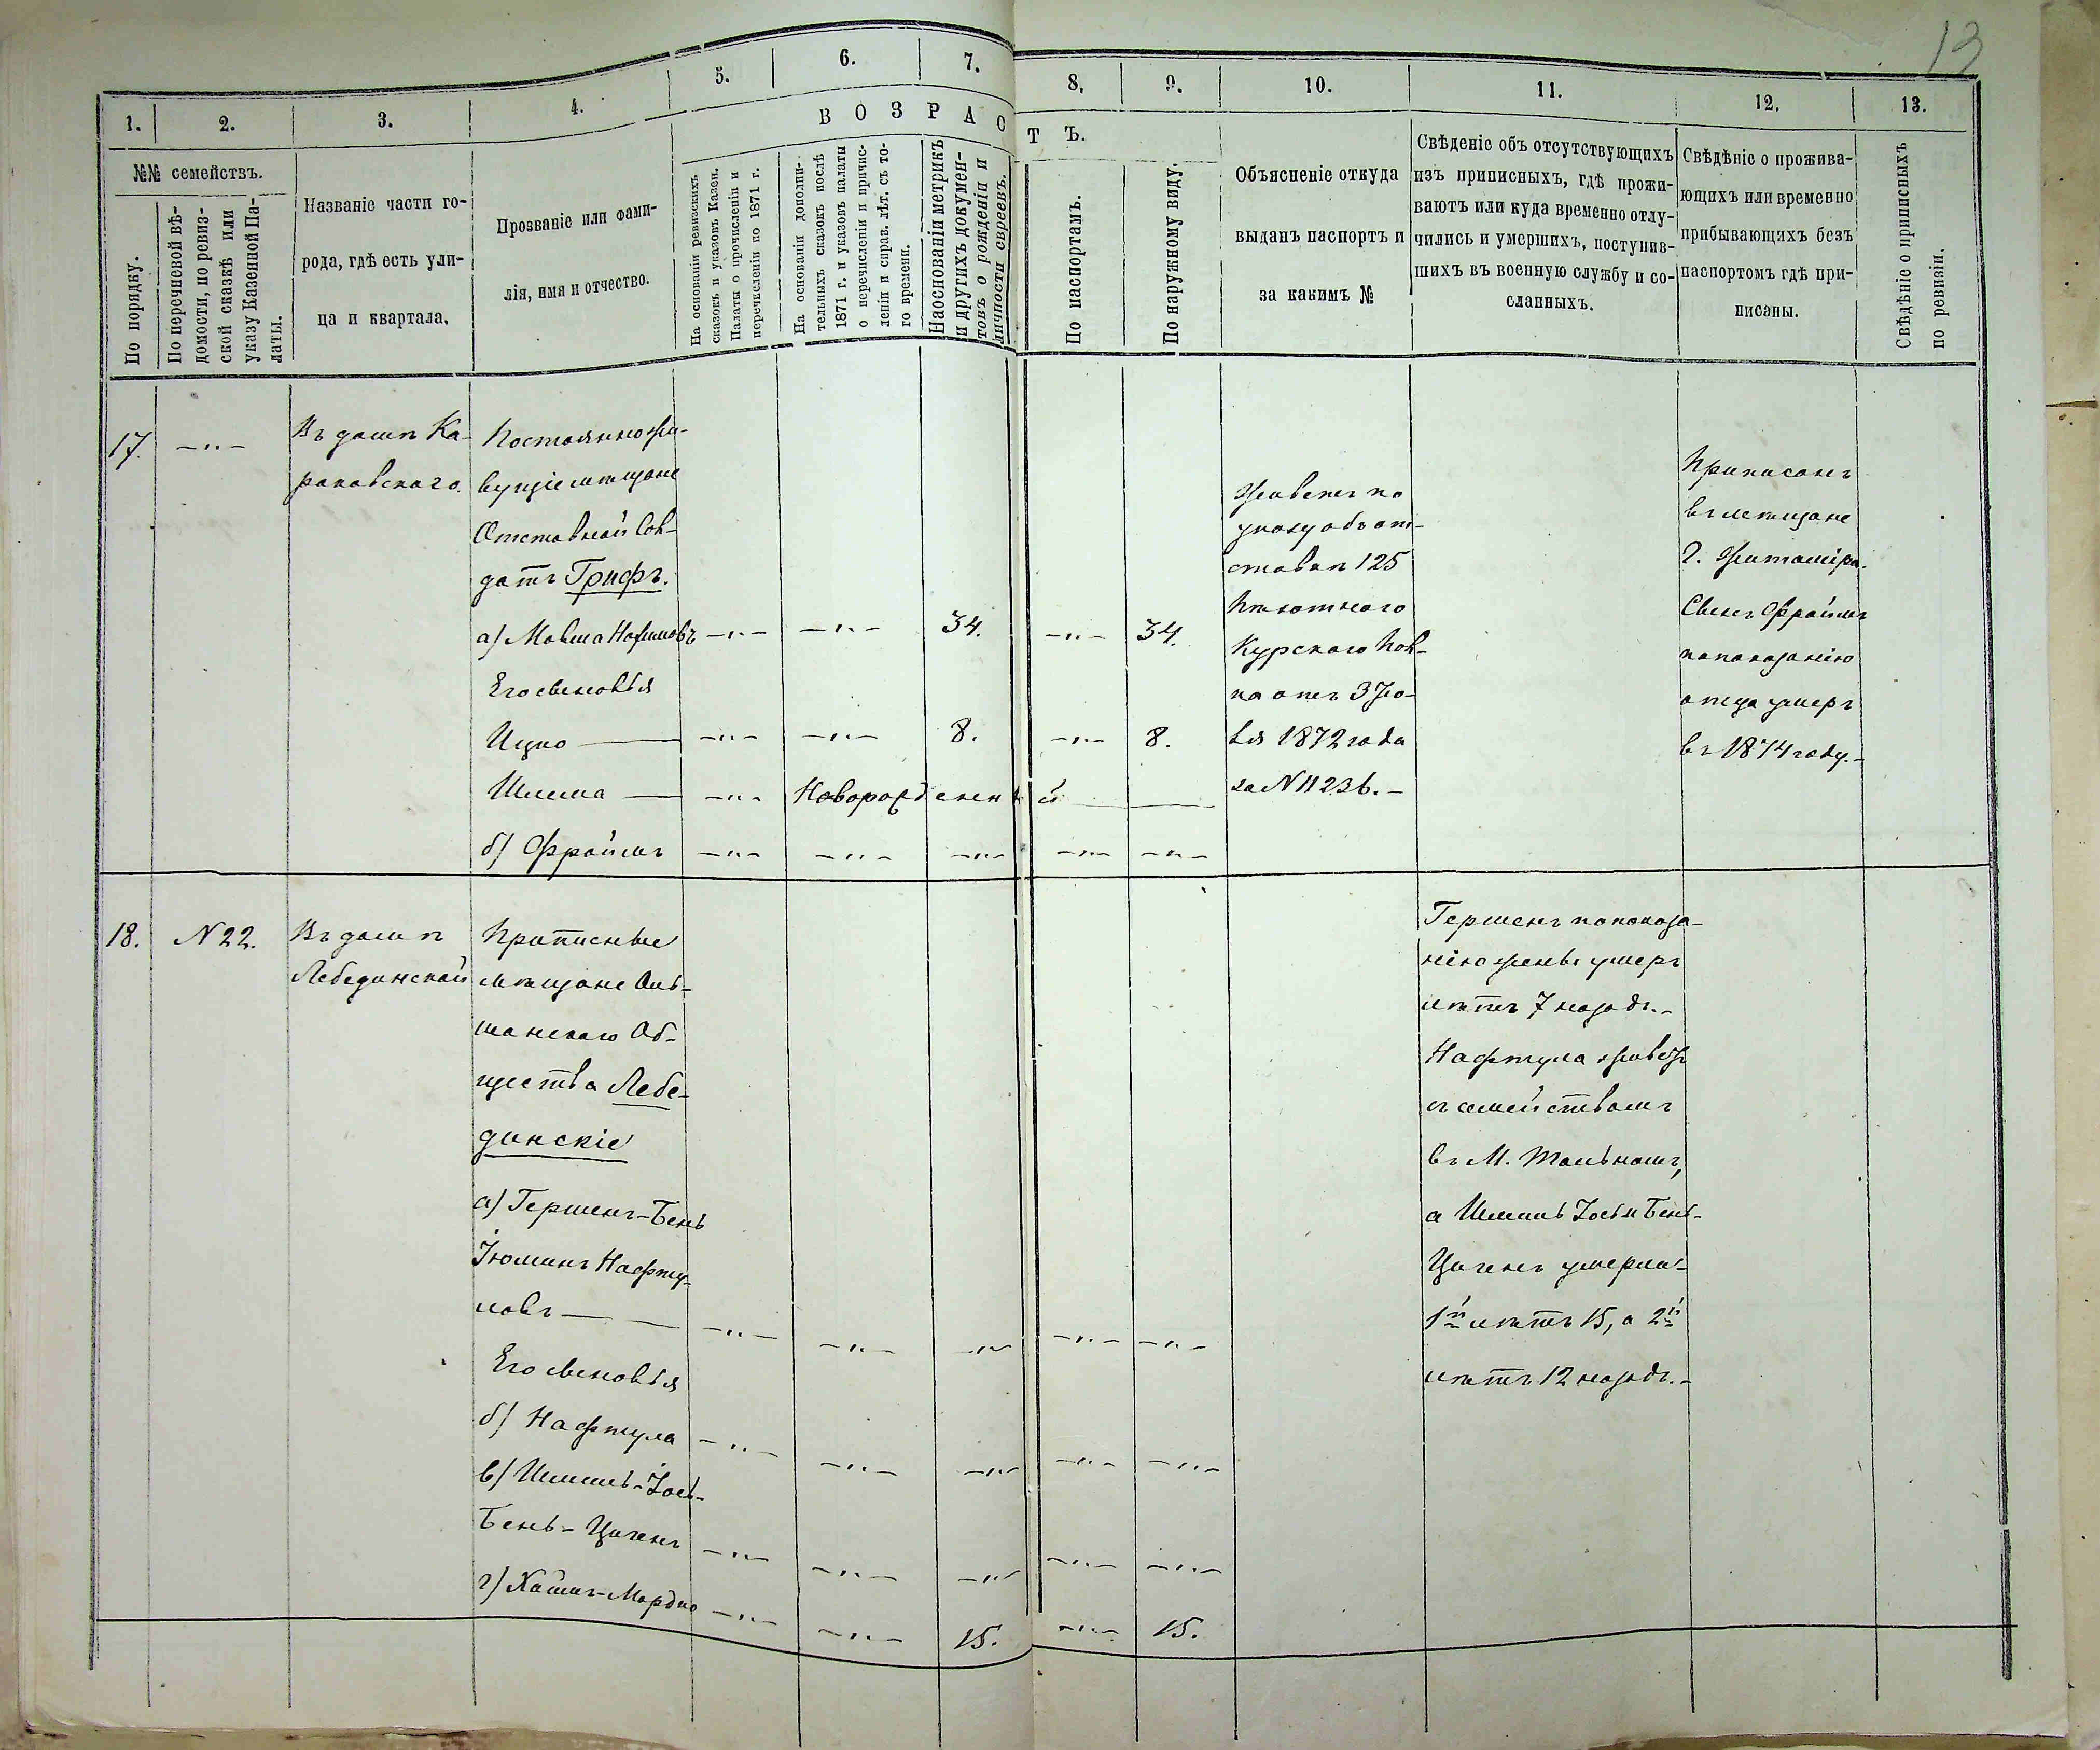 13
1.
2.
3.
4.
5.
6.
7.
8.
9.
10.
11.
12.
13.
ВОЗРАСТЪ.
№№ семействъ.
По порядку.
По перечневой вѣ-
домости, по ревиз-
ской сказкѣ или
указу Казенной Па-
латы.
Названіе части го-
рода, гдѣ есть ули-
ца и квартала.
Прозваніе или фами-
лія, имя и отчество.
На основаніи ревизскихъ
сказокъ и указовъ Казен.
Палаты о причисленіи и
перечисленіи по 1871 г.
На основаніи дополни-
тельныхъ сказокъ послѣ
1871 г. и указовъ палаты
о перечисленіи и причис-
леніи и справ. лѣт. съ то-
го времени.
На основаніи метрикъ
и другихъ докумен-
товъ о рожденіи и
личности евреевъ.
По паспортамъ.
По наружному виду.
Объясненіе откуда
выданъ паспортъ и
за какимъ №
Свѣденіе объ отсутствующихъ
изъ приписныхъ, гдѣ прожи-
ваютъ или куда временно отлу-
чились и умершихъ, поступив-
шихъ въ военную службу и со-
сланныхъ.
Свѣдѣніе о прожива-
ющихъ или временно
прибывающихъ безъ
паспортомъ гдѣ при-
писаны.
Свѣдѣніе о приписныхъ
по ревизіи.
17.
—"—
Въ домѣ Ка-
раковскаго.
Постоянно жи-
вущіе мѣщане
Отставной Сол-
датъ Грифъ.
а) Мовша Нафимовъ —"— —"— 34. —"— 34.
Его сыновья
Ицко —"— —"— 8. —"— 8.
Шлема —"— Новорожденный
б) Фраимъ —"— —"— —"— —"— —"—
Живетъ по
указу объ от-
ставкѣ 125
Пѣхотнаго
Курскаго Пол-
ка отъ 3 Ію-
ля 1872 года
за N 11236.—
Приписанъ
въ мѣщане
г. Житомира.
Сынъ Фраимъ
по показанію
отца умеръ
въ 1874 году.—
18.
N 22.
Въ домѣ
Лебединской
Приписные
мѣщане Оль-
шанскаго Об-
щества Лебе-
динскіе
а) Гершенъ-Бень
Іюминъ Нафту-
ловъ —"— —"— —"— —"— —"—
Его сыновья
б) Нафтула —"— —"— —"— —"— —"—
в) Шлемъ-Іось-
Бень-Цигенъ —"— —"— —"— —"— —"—
г) Хаимъ-Мордко —"— —"— 15. —"— 15.
Гершенъ по показа-
нію жены умеръ
лѣтъ 7 назадъ.—
Нафтула живетъ
съ семействомъ
въ М. Тальномъ,
а Шлемъ Іось и Бень-
Цигенъ умерли
1й лѣтъ 15, а 2й
лѣтъ 12 назадъ.—